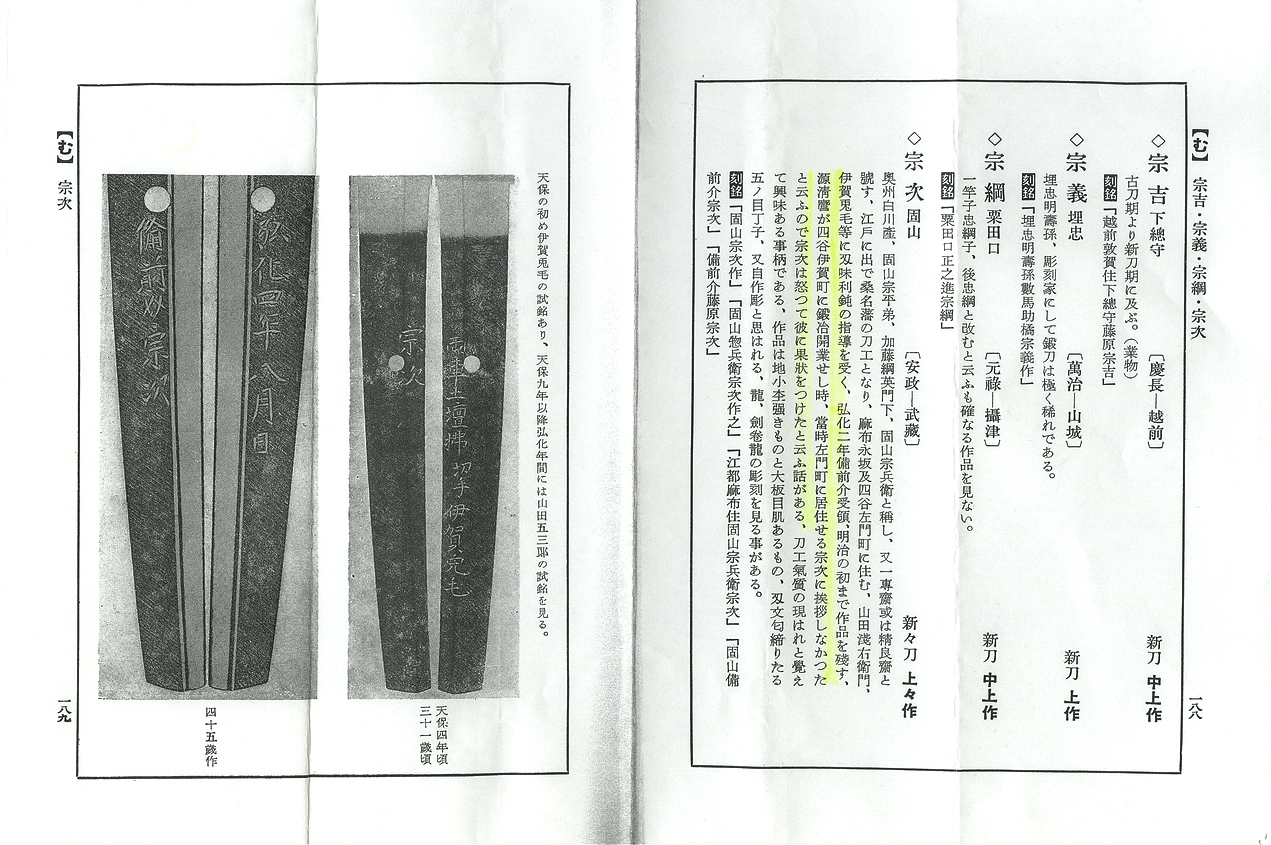 【む】 宗吉・宗義・宗綱・宗次
一八八
◇宗吉 下總守 〔慶長―越前〕 新刀 中上作
古刀期より新刀期に及ぶ。（業物）
刻銘「越前敦賀住下總守藤原宗吉」
◇宗義 埋忠 〔萬治―山城〕 新刀 上作
埋忠明壽孫、彫刻家にして鍛刀は極く稀れである。
刻銘「埋忠明壽孫數馬助橘宗義作」
◇宗綱 粟田口 〔元祿―攝津〕 新刀 中上作
一竿子忠綱子、後忠綱と改むと云ふも確なる作品を見ない。
刻銘「粟田口正之進宗綱」
◇宗次 固山 〔安政―武藏〕 新々刀 上々作
奥州白川産、固山宗平弟、加藤綱英門下、固山宗兵衛と稱し、又一專齋或は精良齋と
號す、江戸に出で桑名藩の刀工となり、麻布永坂及四谷左門町に住む、山田淺右衛門、
伊賀兎毛等に刄味利鈍の指導を受く、弘化二年備前介受領、明治の初まで作品を殘す、
源清麿が四谷伊賀町に鍛冶開業せし時、當時左門町に居住せる宗次に挨拶しなかつた
と云ふので宗次は怒つて彼に果狀をつけたと云ふ話がある、刀工氣質の現はれと覺え
て興味ある事柄である、作品は地小杢强きものと大板目肌あるもの、刄文匂締りたる
五ノ目丁子、又自作彫と思はれる、龍、劍卷龍の彫刻を見る事がある。
刻銘「固山宗次作」「固山惣兵衛宗次作之」「江都麻布住固山宗兵衛宗次」「固山備
前介宗次」「備前介藤原宗次」
天保の初め伊賀兎毛の試銘あり、天保九年以降弘化年間には山田五三郎の試銘を見る。
宗次
壇拂 切手伊賀兎毛
天保四年頃
三十一歲頃
弘化四年八月日
備前介宗次
四十五歲作
【む】 宗次
一八九